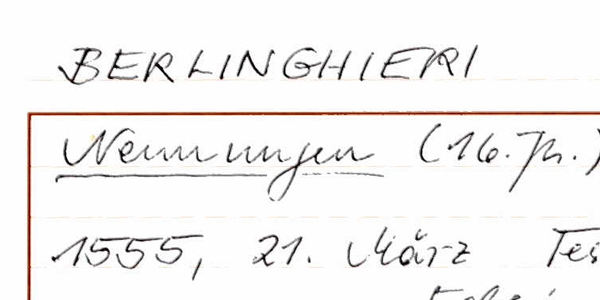 BERLINGHIERI
Nennungen (16. Jh.)
1555, 21. März Tes